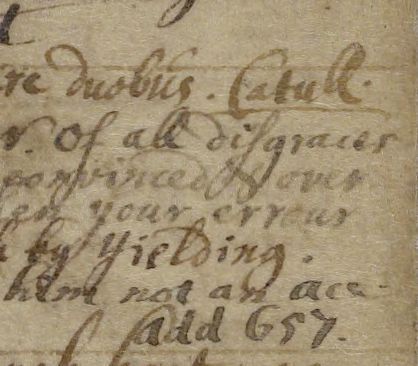 re duobus. Catull.
r. Of all disgraces
convinced & over
en your errour
by Yielding.
him not an ace.
add 657.